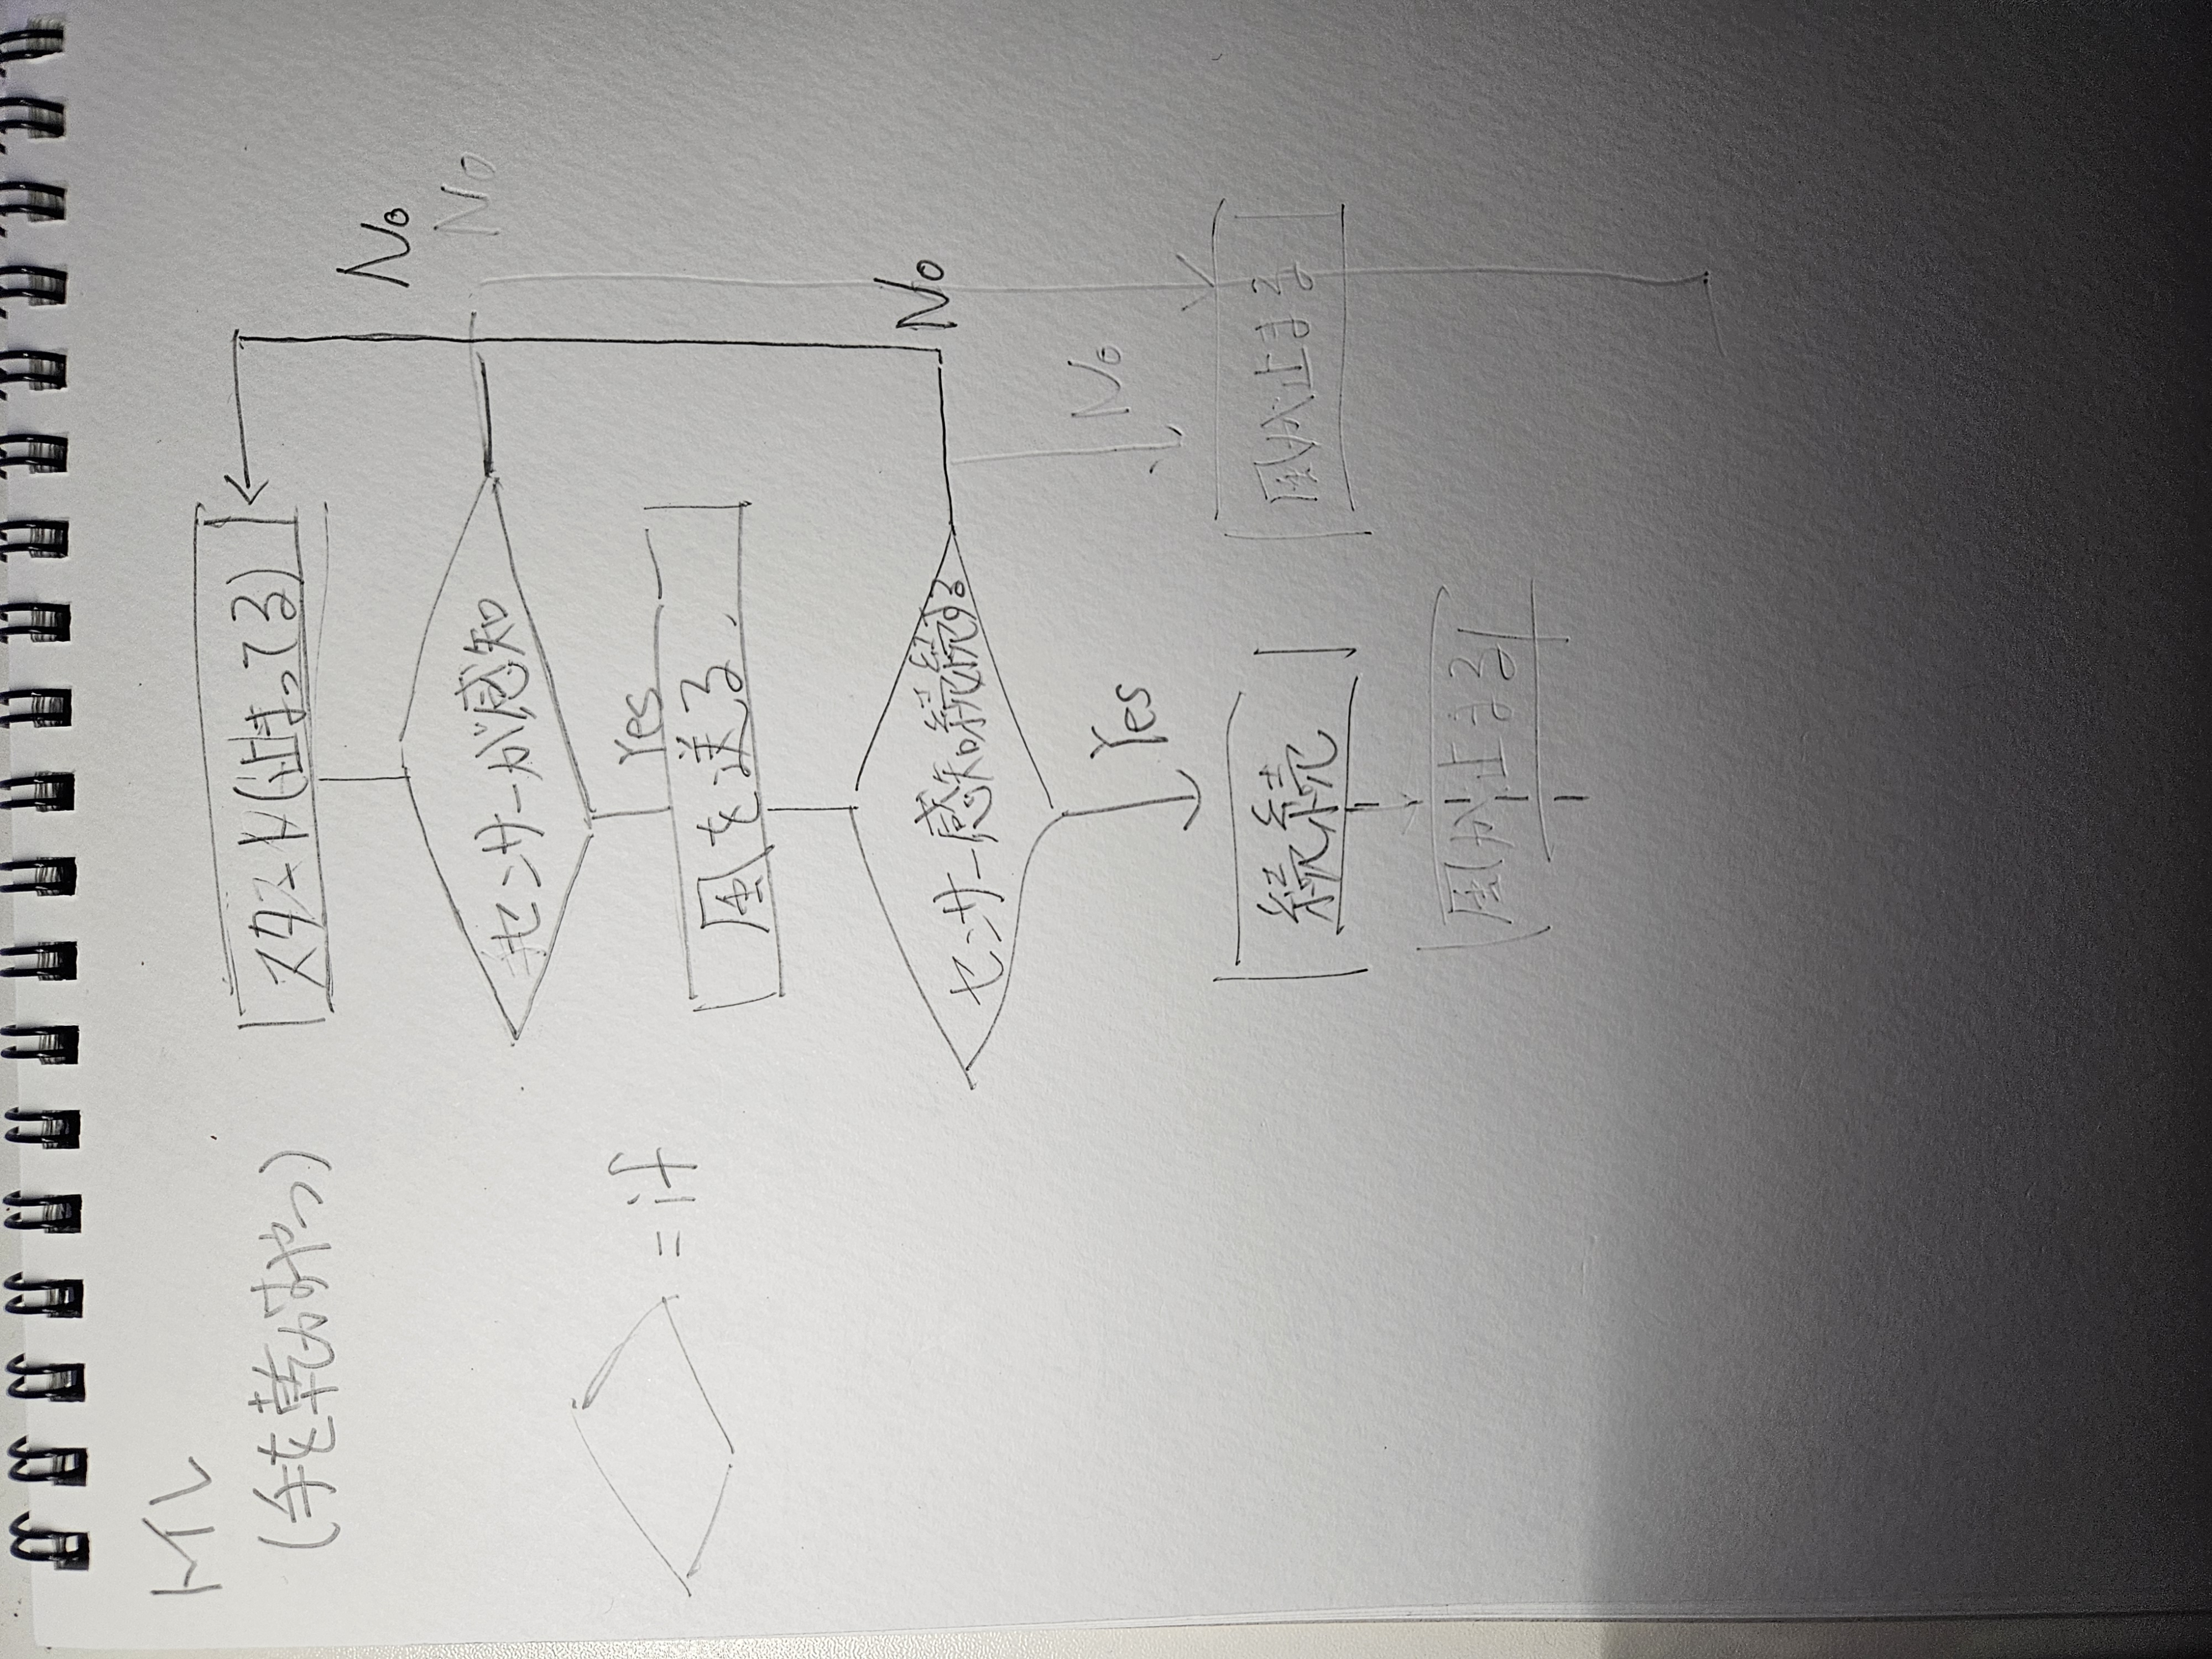 トイレ
(手を乾かすやつ)
スタート(止まってる)
No
No
センサーが感知
= if
Yes
風を送る.
センサー感知続続する
No
Yes
No
続続
風が止まる
風が止まる